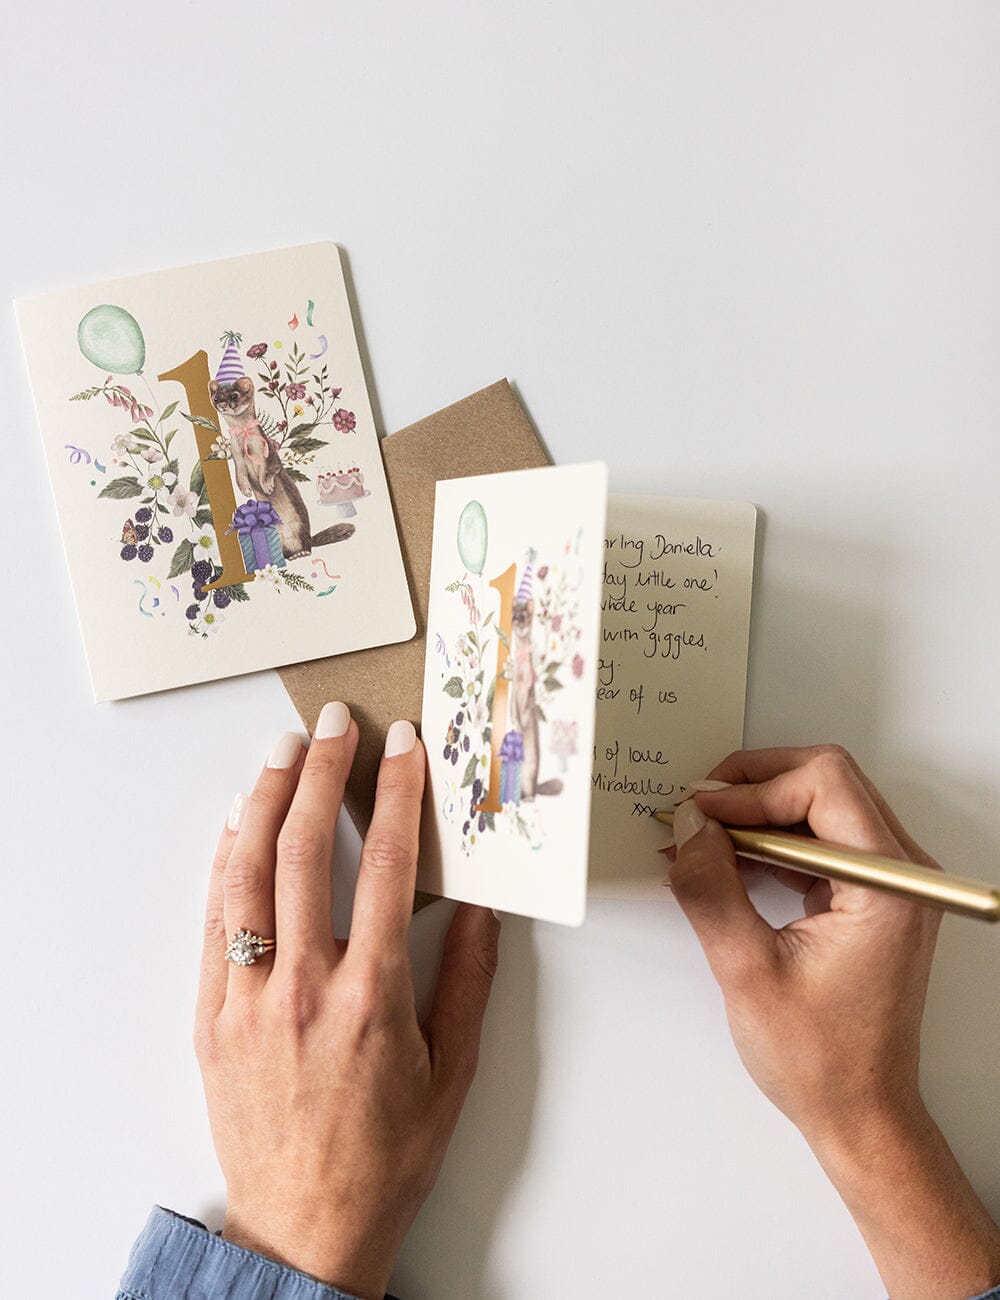 1
1
Daniella
little one!
whole year
with giggles,
of us
of love
Mirabelle
xxx